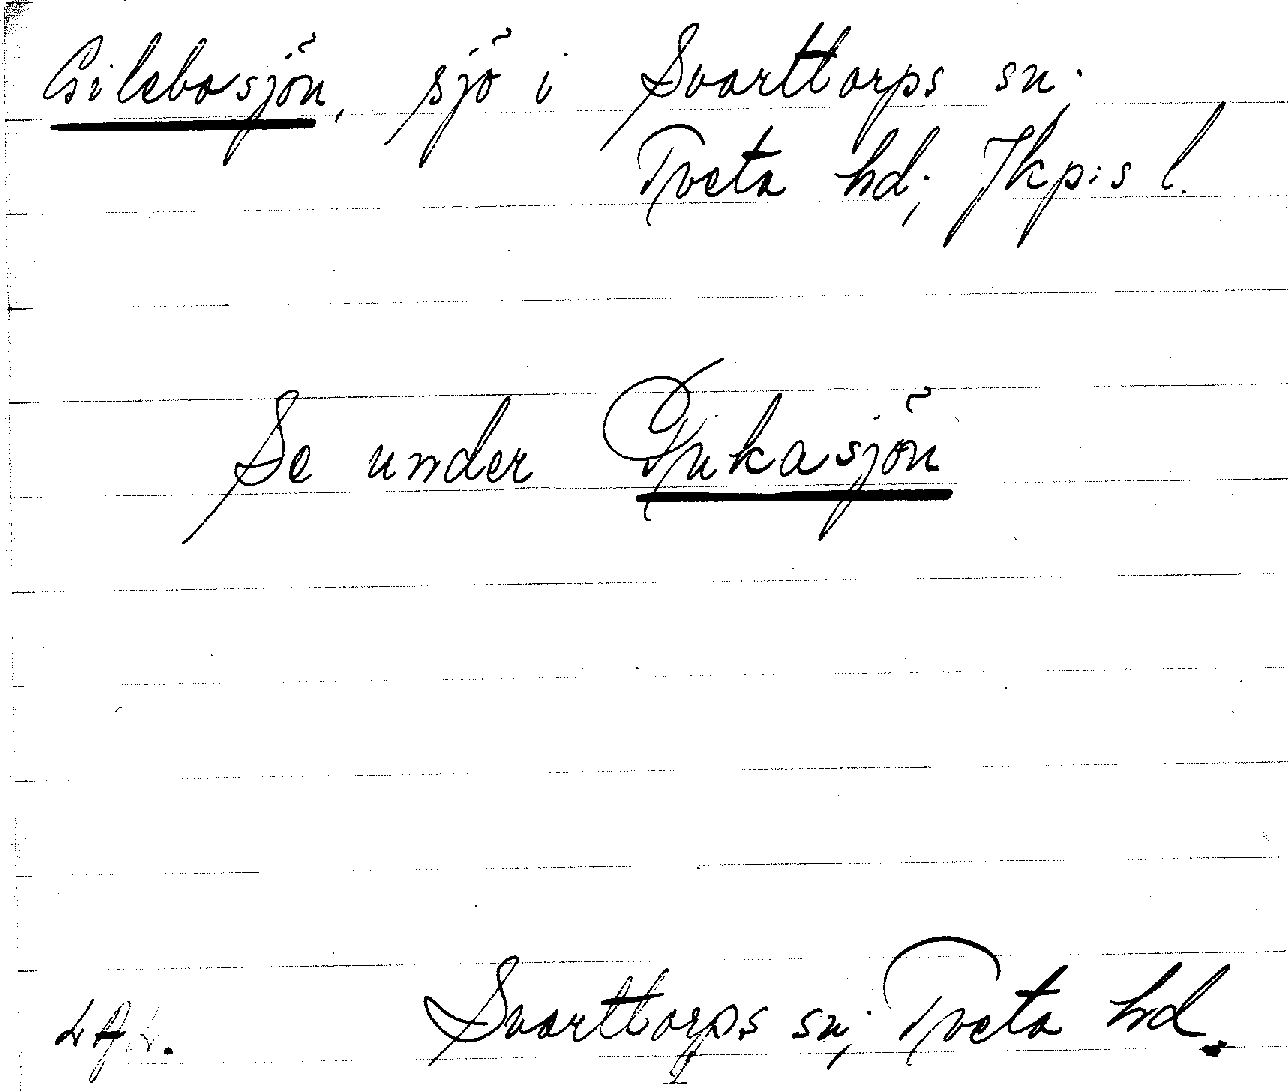 Gilebosjön, sjö i Svarttorps sn;
Tveta hd; Jkp:s l.
Se under
Svarttorps sn; Tveta hd.